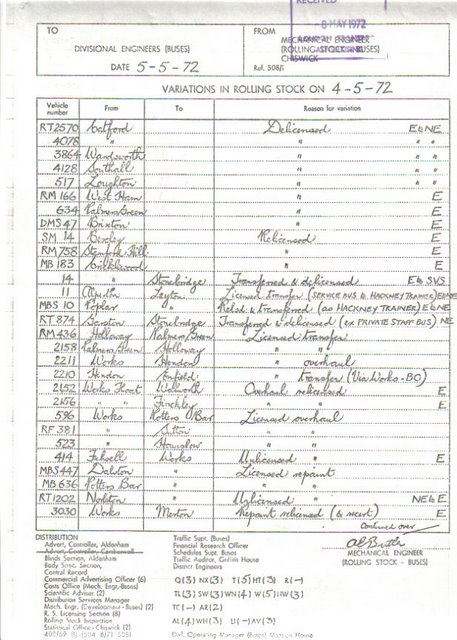 RECEIVED
8 MAY 1972
TO
FROM
DIVISIONAL ENGINEERS (BUSES)
MECHANICAL ENGINEER
(ROLLING STOCK - BUSES)
CHISWICK
DATE 5-5-72
Ref. 508/1
VARIATIONS IN ROLLING STOCK ON 4-5-72
Vehicle number From To Reason for variation
RT2570 Catford Delicensed E&NE
4078 " " " "
3864 Wandsworth " " "
4128 Southall " " "
517 Loughton " " "
RM 166 West Ham " E
634 Palmers Green " E
DMS 47 Brixton " E
SM 14 Bexley Relicensed E
RM 758 Stamford Hill " E
MB 183 Cricklewood " E
14 " Stonebridge Transferred & delicensed E& SVS
11 Merton Leyton Licensed transfer (SERVICE BUS to HACKNEY TRAINER) E&NE
MBS 10 Poplar " Relsd & transferred (as HACKNEY TRAINER) E&NE
RT 874 Garston Stonebridge Transferred & delicensed (ex PRIVATE STAFF BUS) NE
RM 436 Holloway Palmers Green Licensed transfer
2158 Palmers Green Holloway " "
2211 Works Hendon " overhaul
2210 Hendon Enfield " transfer (Via Works-BO)
2152 Works Float Walworth Overhaul relicensed E
2156 " Finchley " " E
596 Works Potters Bar Licensed overhaul
RF 381 " Sutton " "
523 " Hounslow " "
414 Fulwell Works Unlicensed " E
MBS 447 Dalston " Licensed repaint
MB 636 Potters Bar " " "
RT 1202 Norbiton " Unlicensed " NE & E
3030 Works Merton Repaint relicensed (& recert) E
Continued over
DISTRIBUTION
Advert. Controller, Aldenham
Advert. Controller, Camberwell
Blinds Section, Aldenham
Body Struc. Section,
Central Record
Commercial Advertising Officer (6)
Costs Office (Mech. Engr-Buses)
Scientific Adviser (2)
Distribution Services Manager
Mech. Engr. (Development - Buses) (2)
R. S. Licensing Section (8)
Rolling Stock Inspection
Statistical Office - Chiswick (2)
Traffic Supt. (Buses)
Financial Research Officer
Schedules Supt. Buses
Traffic Auditor, Griffith House
District Engineers
MECHANICAL ENGINEER
(ROLLING STOCK - BUSES)
Q(3) NX(3) T(5) HT(3) R(-)
TL(3) SW(3) WN(4) W(5) HW(3)
TC(-) AR(2)
AL(4) WH(3) U(-) AV(3)